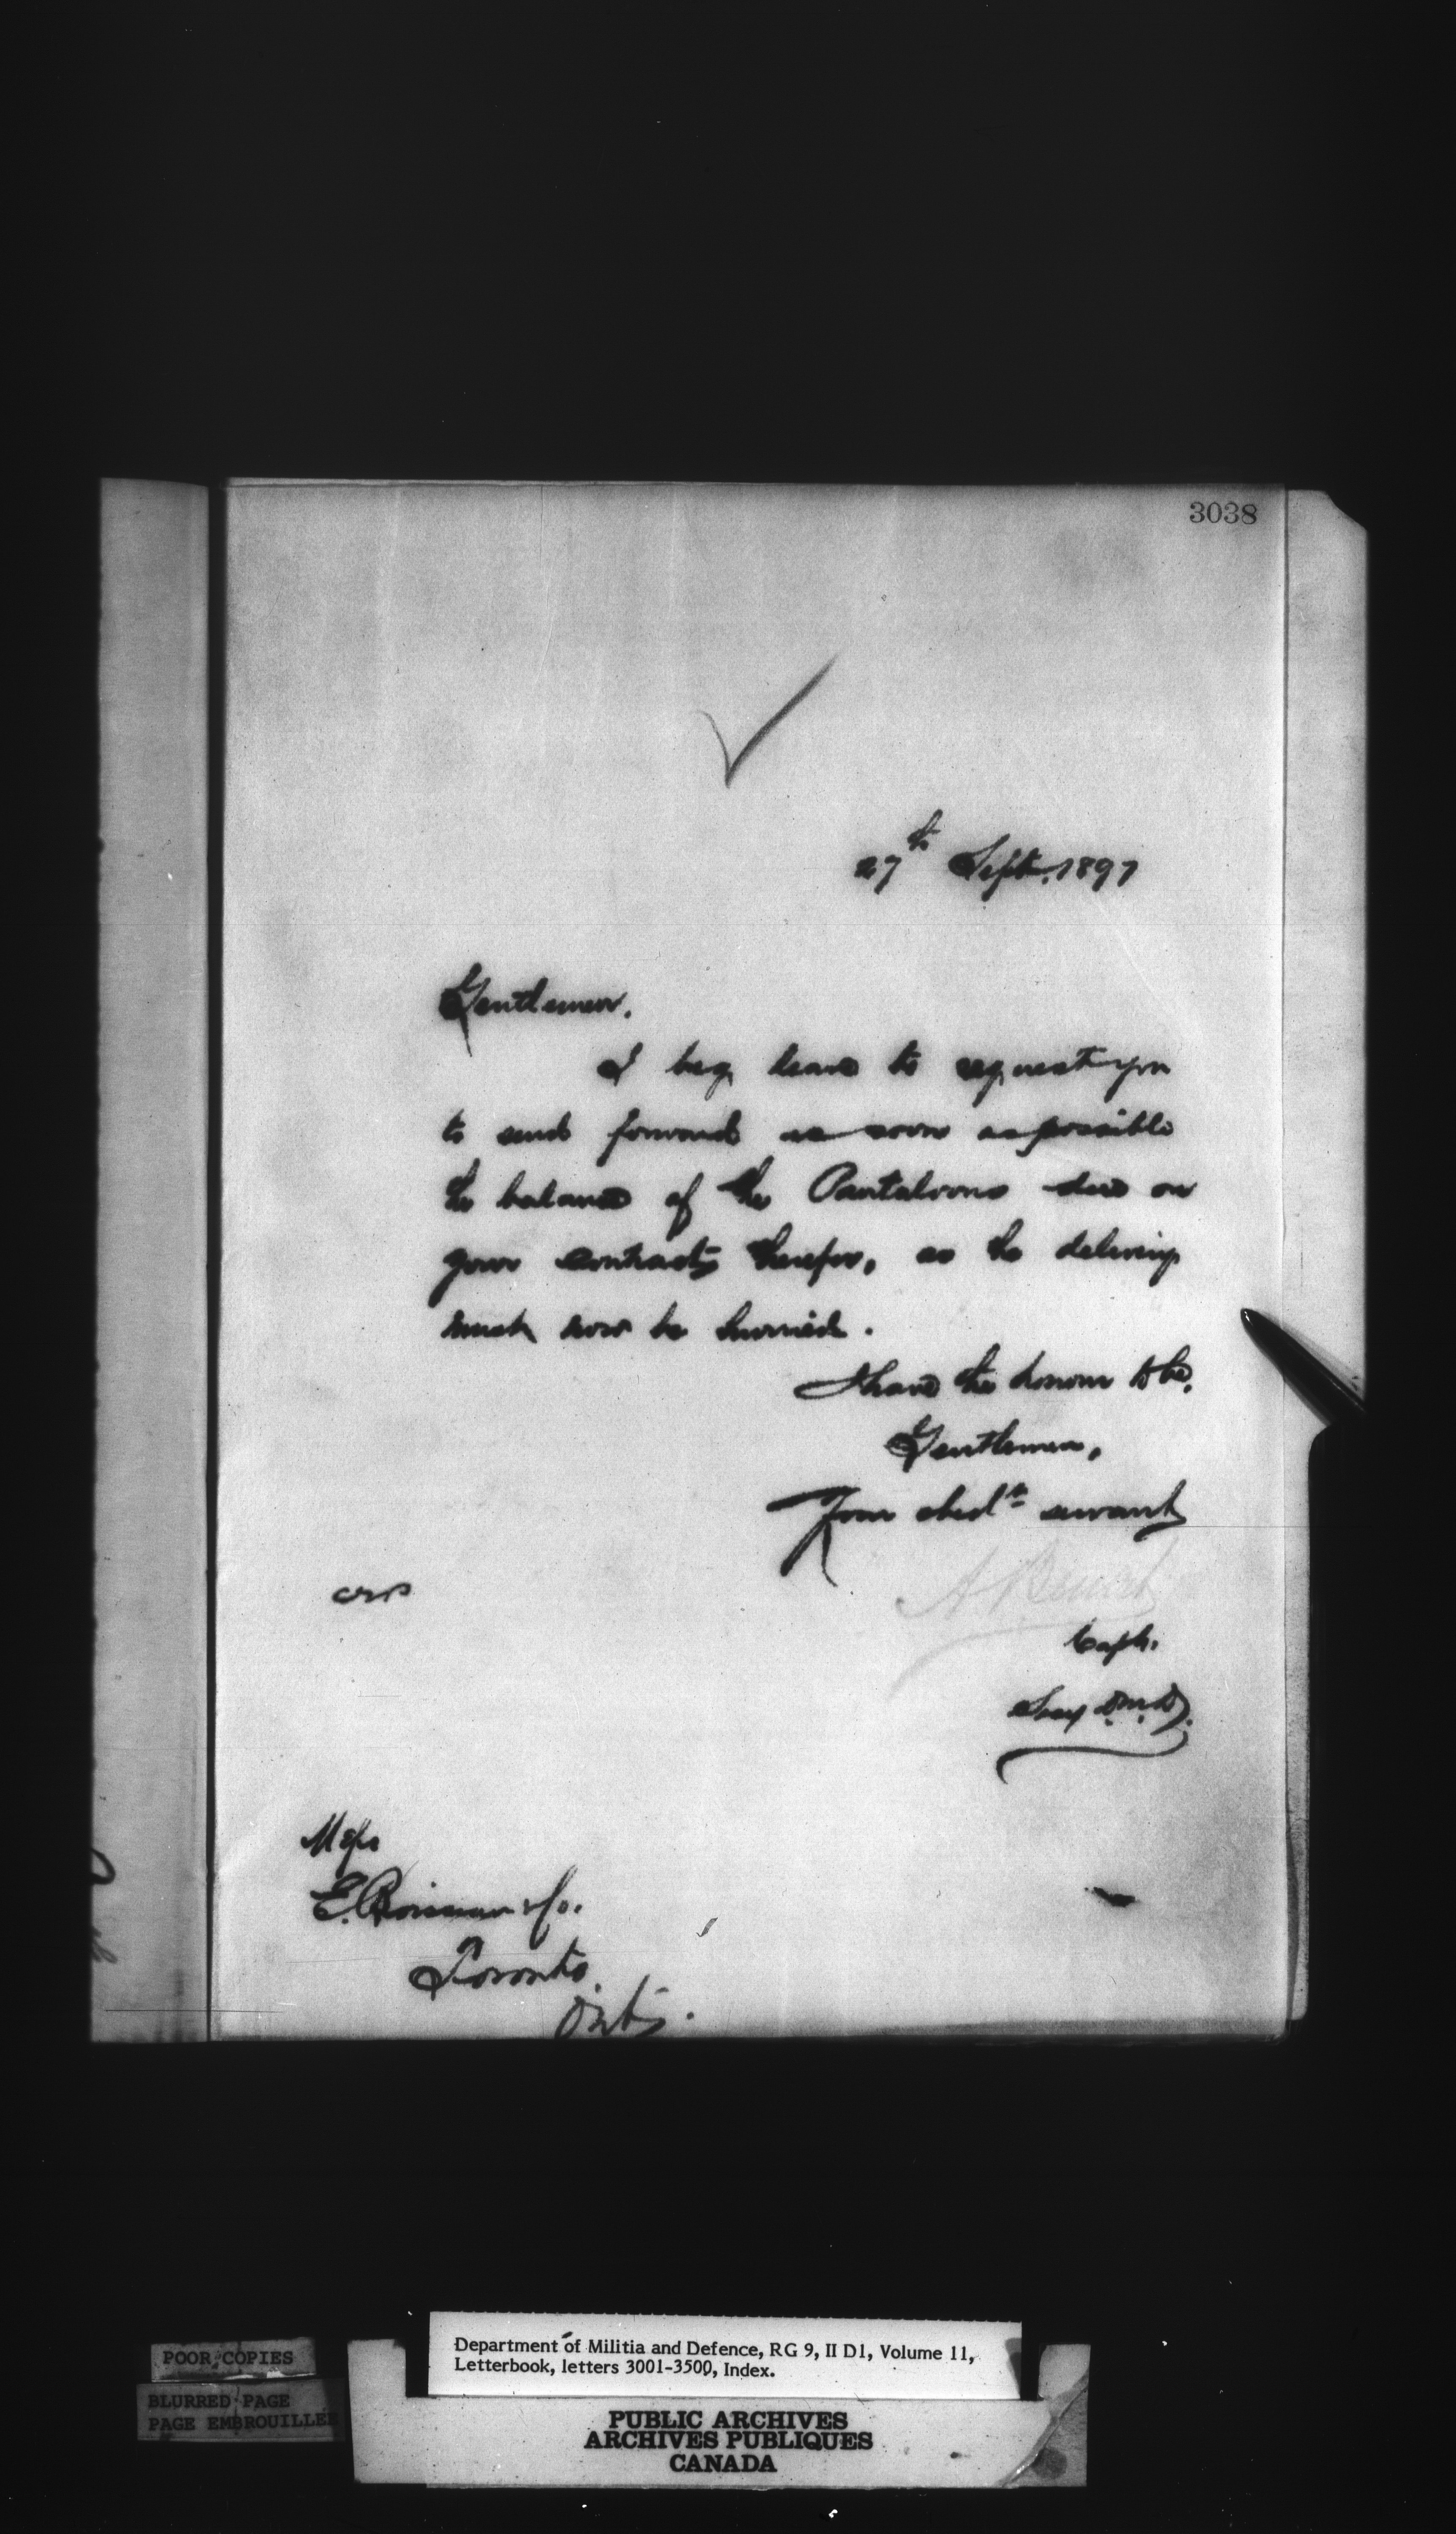 3038
27th Sept. 1897
Gentlemen.
I beg leave to request you
to send forward as soon as possible
the balance of the Pantaloons due on
your contracts therefor, as the delivery
must now be hurried.
I have the honour to be,
Gentlemen,
Your obedt servant
A Benoit
Capt.
Secy D.M.D.
Messrs
E. Boisseau & Co.
Toronto.
Ont.
POOR COPIES
BLURRED PAGE
PAGE EMBROUILLEE
Department of Militia and Defence, RG 9, II D1, Volume 11,
Letterbook, letters 3001-3500, Index.
PUBLIC ARCHIVES
ARCHIVES PUBLIQUES
CANADA